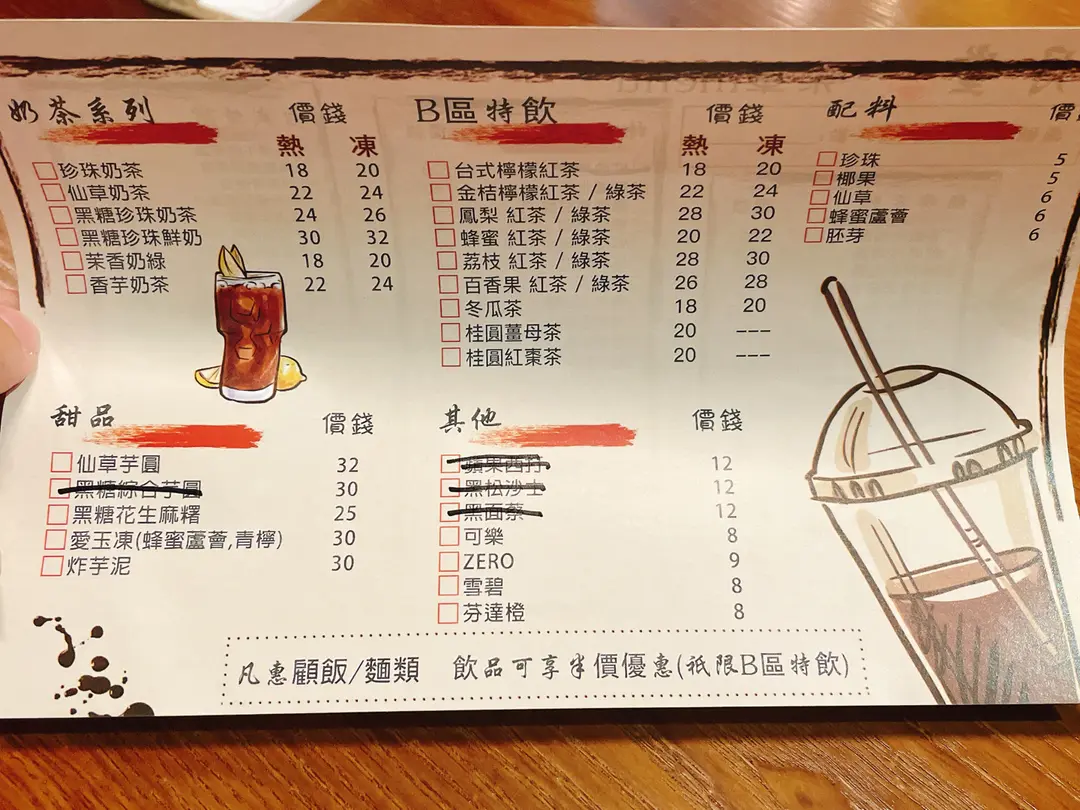 奶茶系列 價錢
熱 凍
珍珠奶茶 18 20
仙草奶茶 22 24
黑糖珍珠奶茶 24 26
黑糖珍珠鮮奶 30 32
茉香奶綠 18 20
香芋奶茶 22 24
B區特飲 價錢
熱 凍
台式檸檬紅茶 18 20
金桔檸檬紅茶 / 綠茶 22 24
鳳梨 紅茶 / 綠茶 28 30
蜂蜜 紅茶 / 綠茶 20 22
荔枝 紅茶 / 綠茶 28 30
百香果 紅茶 / 綠茶 26 28
冬瓜茶 18 20
桂圓薑母茶 20 ---
桂圓紅棗茶 20 ---
配料
珍珠 5
椰果 5
仙草 6
蜂蜜蘆薈 6
胚芽 6
甜品 價錢
仙草芋圓 32
黑糖綜合芋圓 30
黑糖花生麻糬 25
愛玉凍(蜂蜜蘆薈,青檸) 30
炸芋泥 30
其他 價錢
蘋果西打 12
黑松沙士 12
黑面蔡 12
可樂 8
ZERO 9
雪碧 8
芬達橙 8
凡惠顧飯/麵類 飲品可享半價優惠(祇限B區特飲)